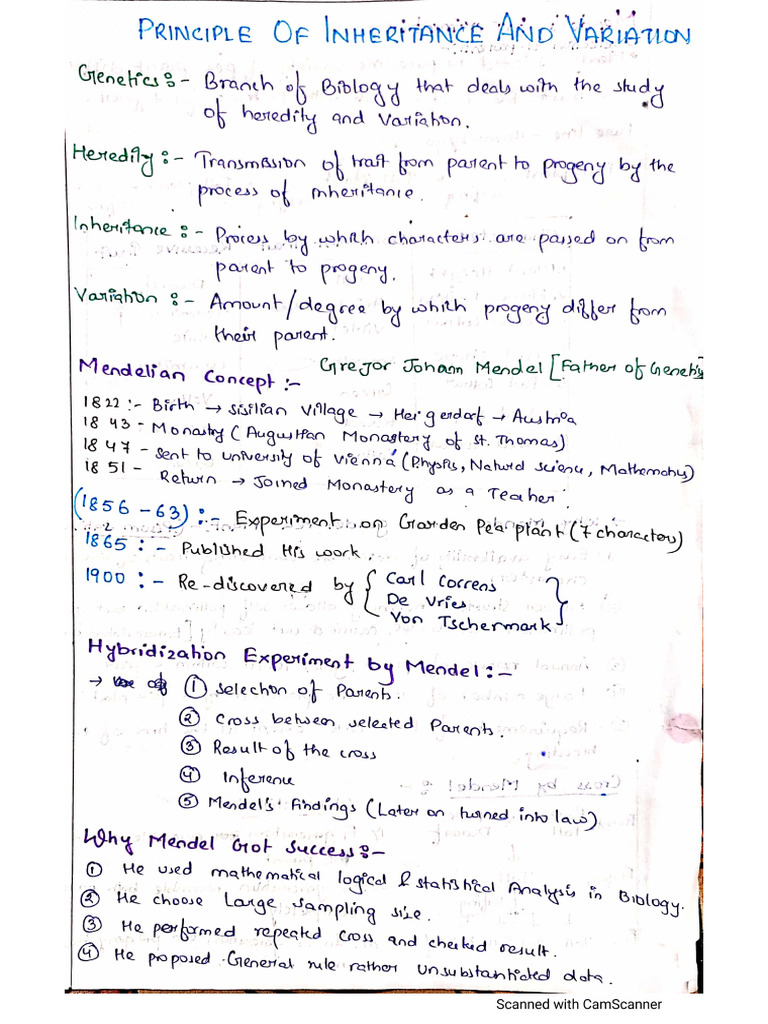 PRINCIPLE OF INHERITANCE AND VARIATION
Genetics :- Branch of Biology that deals with the study
of heredity and Variation.
Heredity :- Transmission of trait from parent to progeny by the
process of inheritance.
Inheritance :- Process by which characters are passed on from
parent to progeny.
Variation :- Amount/degree by which progeny differ from
their parent.
Mendelian Concept :- Gregor Johann Mendel [Father of Genetics]
1822 :- Birth → Sisilian Village → Heigerdorf → Austria
1843 - Monastry (Augustian Monastery of St. Thomas)
1847 - Sent to University of Vienna (Physics, Natural Science, Mathematics)
1851 - Return → Joined Monastery as a Teacher.
(1856 - 63) :- Experiment on Garden Pea plant (7 characters)
1865 :- Published His work.
1900 :- Re-discovered by { Carl Correns
De Vries
Von Tschermark }
Hybridization Experiment by Mendel :-
→ ① Selection of Parents.
② Cross between selected Parents.
③ Result of the cross
④ Inference
⑤ Mendel's findings (Later on turned into law)
Why Mendel Got Success :-
① He used mathematical logical & statistical Analysis in Biology.
② He choose Large sampling size.
③ He performed repeated cross and checked result.
④ He proposed General rule rather unsubstantiated data.
Scanned with CamScanner